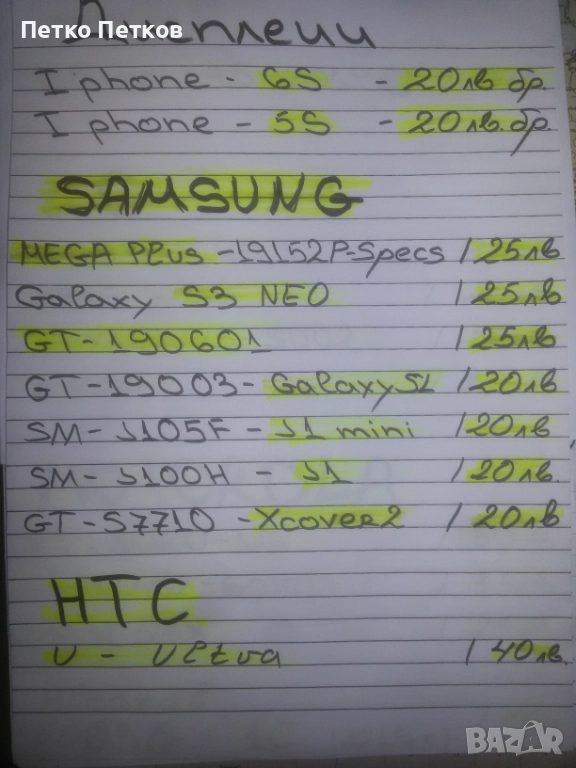 Петко Петков
Дисплеи
I phone - 6S - 20лв бр.
I phone - 5S - 20лв. бр.
SAMSUNG
MEGA PLus - 19152P-Specs / 25лв
Galaxy S3 NEO / 25лв
GT-190601 / 25лв
GT-19003 - Galaxy SL / 20лв
SM-J105F - J1 mini / 20лв
SM-J100H - J1 / 20лв.
GT-S7710 - Xcover 2 / 20лв
HTC
U - ULtra / 40лв.
BAZAR